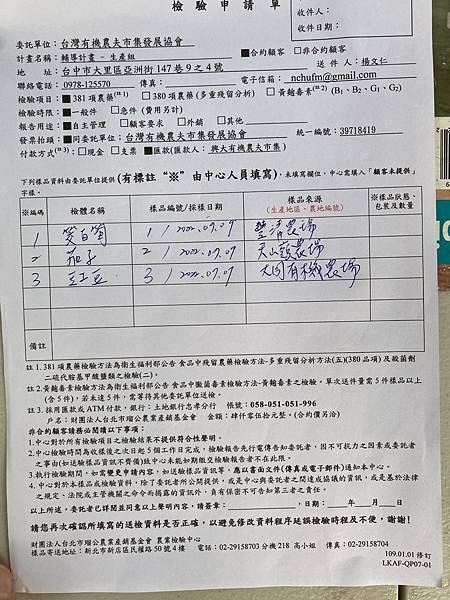 檢驗申請單
收件人：
收件日期：
委託單位：台灣有機農夫市集發展協會 ■合約顧客 □非合約顧客
計畫名稱：輔導計畫－生產組 送件人：楊文仁
地 址：台中市大里區亞洲街147巷9之4號
聯絡電話：0978-125570 傳真： 電子信箱：nchufm@gmail.com
檢驗項目：■381項農藥(註1) □380項農藥(多重殘留分析) □黃麴毒素(註2) (B₁、B₂、G₁、G₂)
檢驗時限：■一般件 □急件(費用另計)
報告用途：■自主管理 □顧客要求 □外銷 □其他
發票抬頭：■同委託單位：台灣有機農夫市集發展協會 統一編號：39718419
付款方式(註3)：□現金 □支票 ■匯款(匯款人：興大有機農夫市集)
下列樣品資料由委託單位提供(有標註“※”由中心人員填寫)，未填寫欄位，中心需填入「顧客未提供」
字樣。
※編碼 檢體名稱 樣品編號/採樣日期 樣品來源 ※樣品狀態、
(生產地區、農地編號) 包裝及數量
1 茭白筍 1 / 2022.07.09 豐清農場
2 茄子 2 / 2022.07.07 天山頭農場
3 豇豆 3 / 2022.07.07 大同有機農場
備註
註1. 381項農藥檢驗方法為衛生福利部公告 食品中殘留農藥檢驗方法-多重殘留分析方法(五)(380品項)及殺菌劑
二硫代胺基甲酸鹽類之檢驗(二)。
註2.黃麴毒素檢驗方法為衛生福利部公告 食品中黴菌毒素檢驗方法-黃麴毒素之檢驗。單次送件量需5件樣品以上
(含5件)，若未達5件，需等待其他委託單位送檢。
註3. 採用匯款或ATM付款，銀行：上地銀行忠孝分行 帳號：058-051-051-996
戶名：財團法人台北市瑠公農業產銷基金會 金額：肆仟零伍拾元整。(合約價另洽)
非合約顧客請務必閱讀以下事項：
1.中心對於所有檢驗項目之檢驗結果不提供符合性聲明。
2.中心檢驗時間為收樣後之次日起5個工作日完成，檢驗報告先行電傳告知委託者，因不可抗力之因素或委託者
之事由(如送驗樣品資訊不齊備)致中心未能如期繳交檢驗報告者不在此限。
3.執行檢驗期間，如需變更申請內容，如送驗樣品資訊等，應以書面文件(傳真或電子郵件)通知本中心。
4.中心對於本樣品或檢驗資料，除了委託者所公開提供，或是中心與委託者之間達成協議的資訊，或是基於法律
之規定、法院或主管機關之命令而揭露的資訊外，負有保密不可告知第三者之責任。
以上所述，委託者已詳閱並同意以上聲明內容，請簽章： 日期： 年 月 日
請您再次確認所填寫的送檢資料是否正確，以避免修改資料程序延誤檢驗時程及不便，謝謝!
財團法人台北市瑠公農業產銷基金會 農業檢驗中心
樣品寄送地址：新北市新店區民權路50號4樓 電話：02-29158703分機218 高小姐 傳真：02-29158704
109.01.01修訂
LKAF-QP07-01